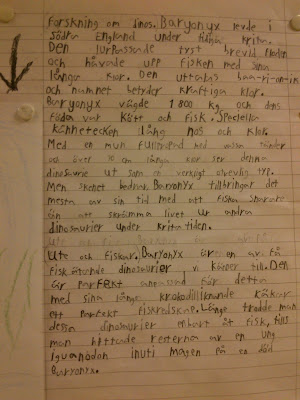 Forskning om dinos. Baryonyx levde i
södra England under tidiga krita.
Den lurpassade tyst bredvid floden
och håvade upp fisken med sina
långa klor. Den uttalas bar-ri-on-ix
och namnet betyder kraftiga klor.
Baryonyx vägde 1800 kg och dens
föda var kött och fisk. Speciella
kännetecken lång nos och klor.
Med en mun fullproppad med vassa tänder
och över 30 cm långa klor ser denna
dinosaurie ut som en verkligt otrevlig typ.
Men skenet bedrar. Baryonyx tillbringar det
mesta av sin tid med att fiska snarare
än att skrämma livet ur andra
dinosaurier under kritatiden.
Ute och fiskar. Baryonyx är en av få
fisk ätande dinosaurier vi känner till. Den
är perfekt anpassad för detta
med sina långa krokodilliknande käkar
ett perfekt fiskredskap. Länge trodde man
dessa dinosaurier enbart åt fisk, tills
man hittade resterna av en ung
iguanodon inuti magen på en död
Baryonyx.